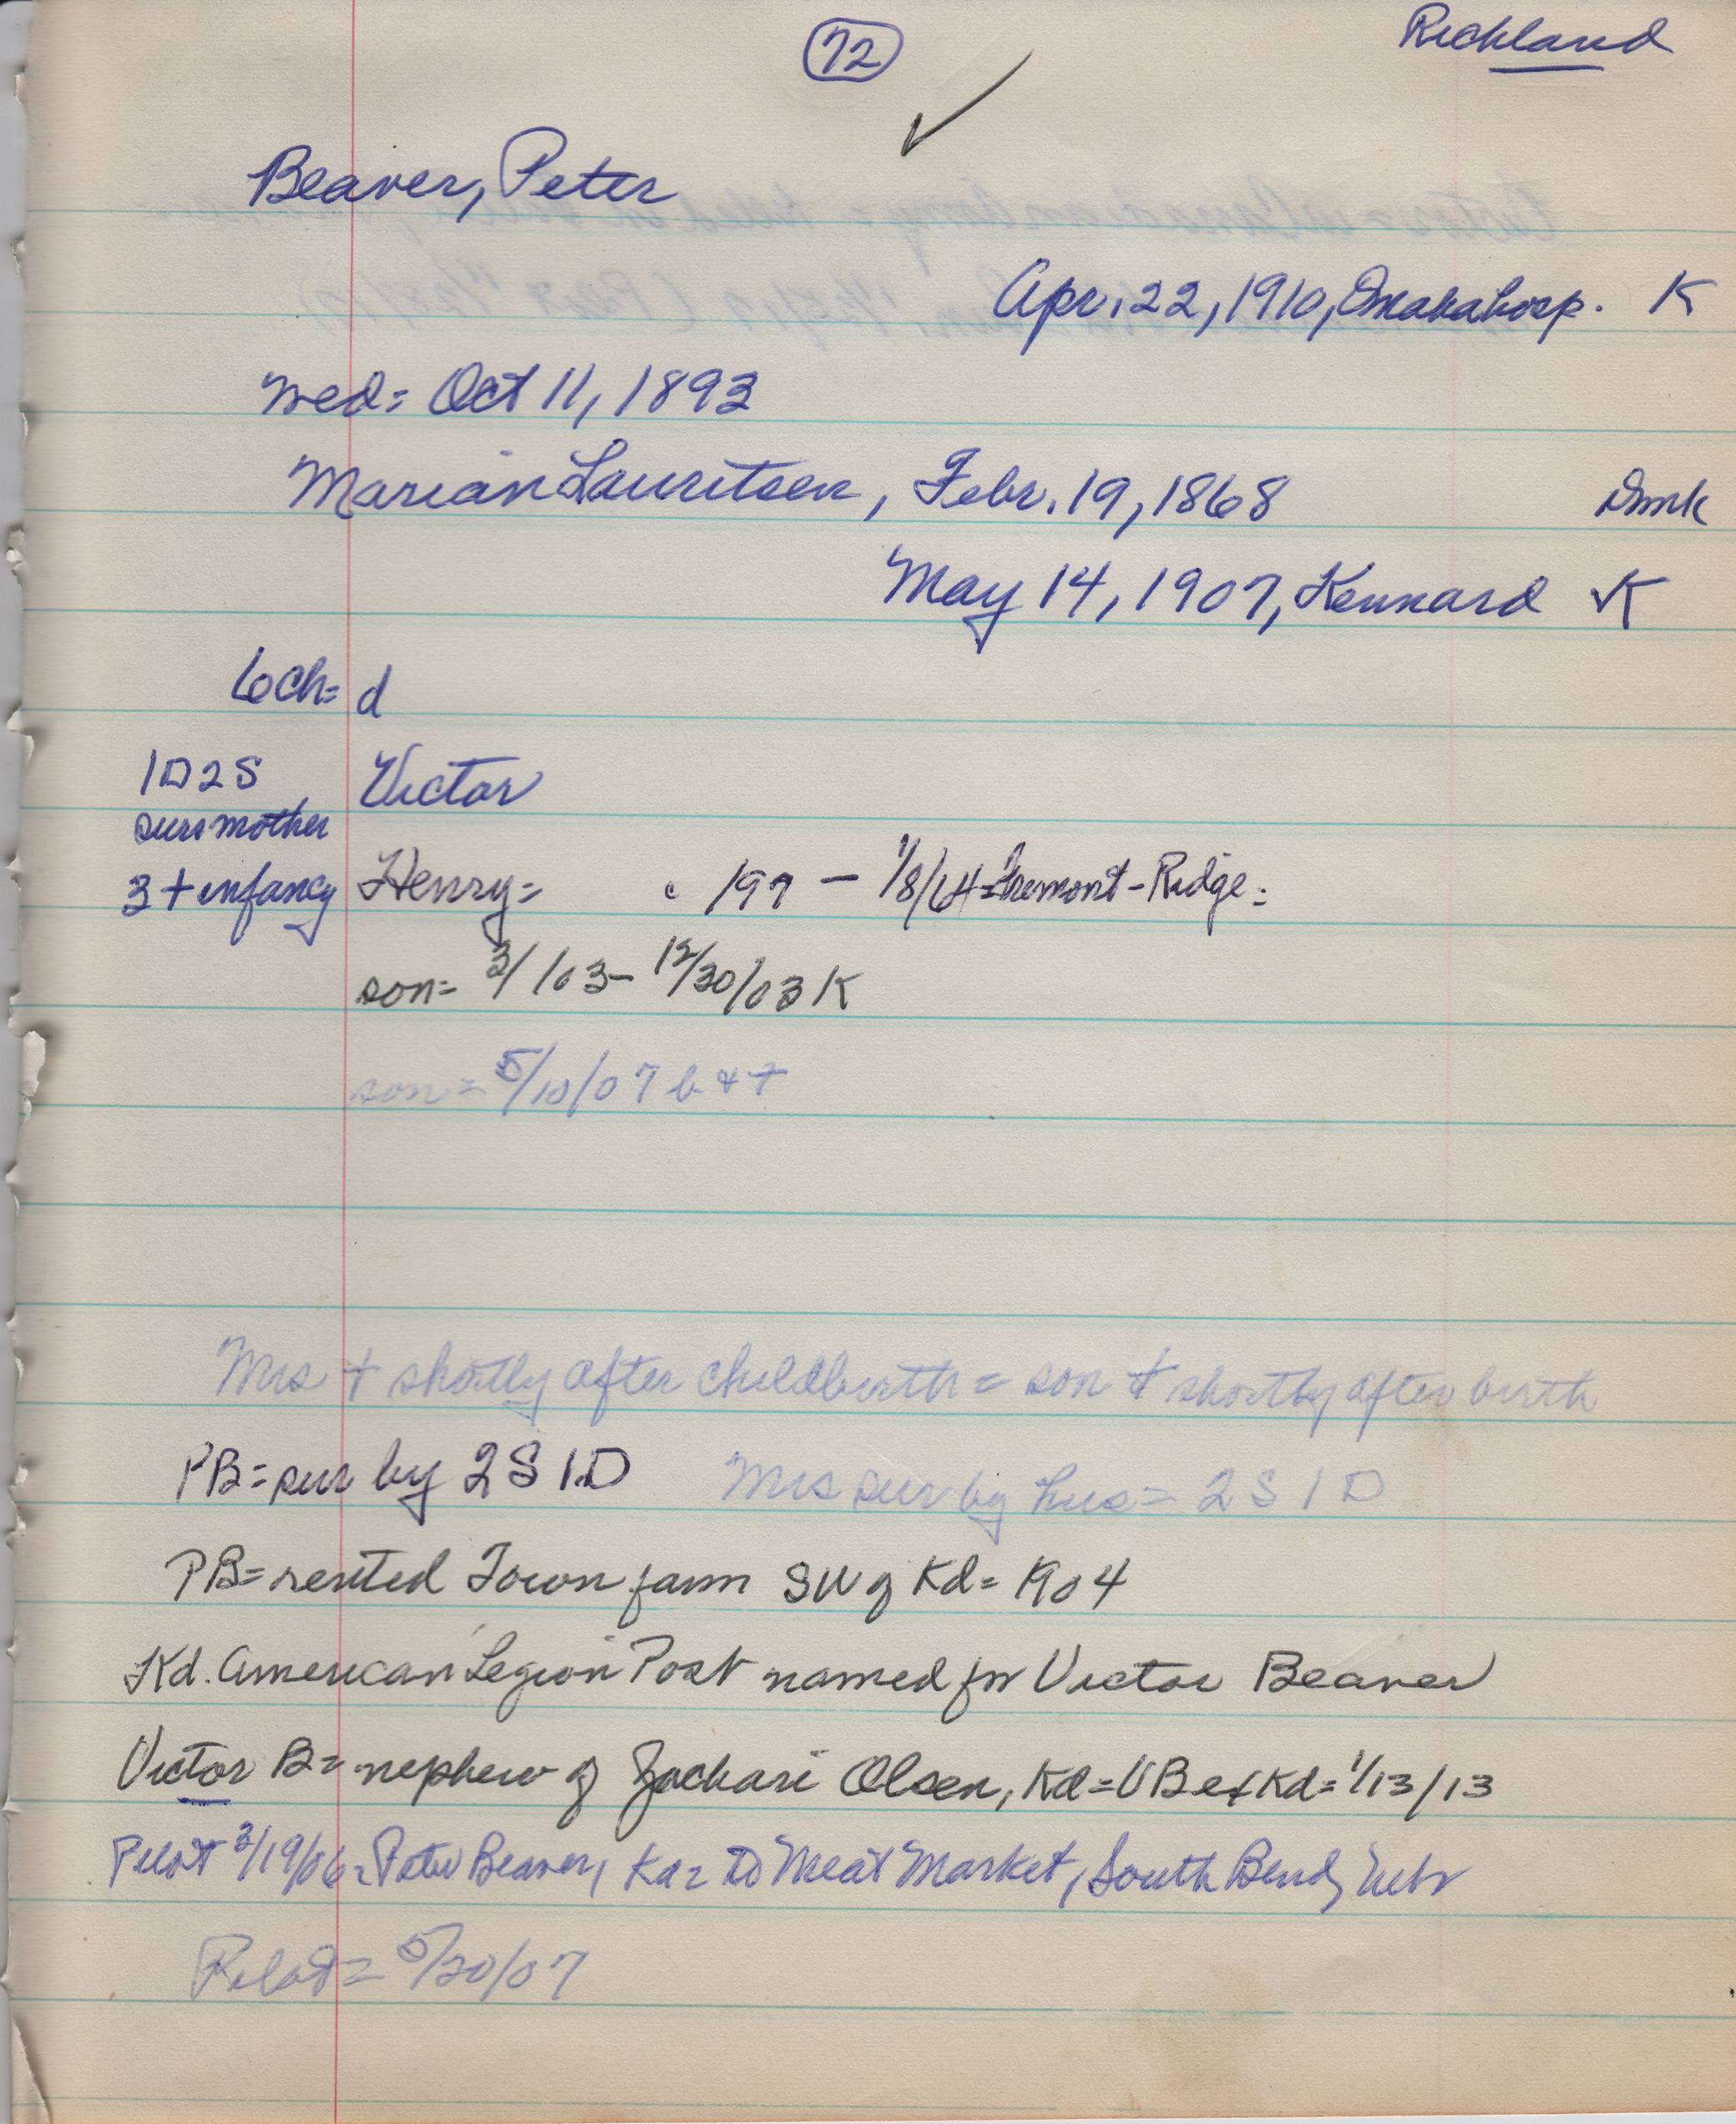 72
Richland
Beaver, Peter
Apr. 22, 1910, Omaha hosp. K
wed= Oct 11, 1893
Marian Lauritsen, Febr. 19, 1868 Dmk
May 14, 1907, Kennard K
6 ch= d
1D 2S Victor
surv mother
3 + infancy Henry= c 197 — 1/8/64=Fremont-Ridge=
son= 3/ /03- 12/30/03 K
son= 5/10/07 b + +
Mrs + shortly after childbirth = son + shortly after birth
PB= sur by 2S 1D Mrs sur by hus= 2S 1D
PB= rented Town farm SW of Kd= 1904
Kd. American Legion Post named for Victor Beaver
Victor B= nephew of Zachari Olsen, Kd= VB ex Kd= 1/13/13
Pilot 3/19/06= Peter Beaver, Kd= to Meat Market, South Bend, Nebr
Pilot= 5/20/07